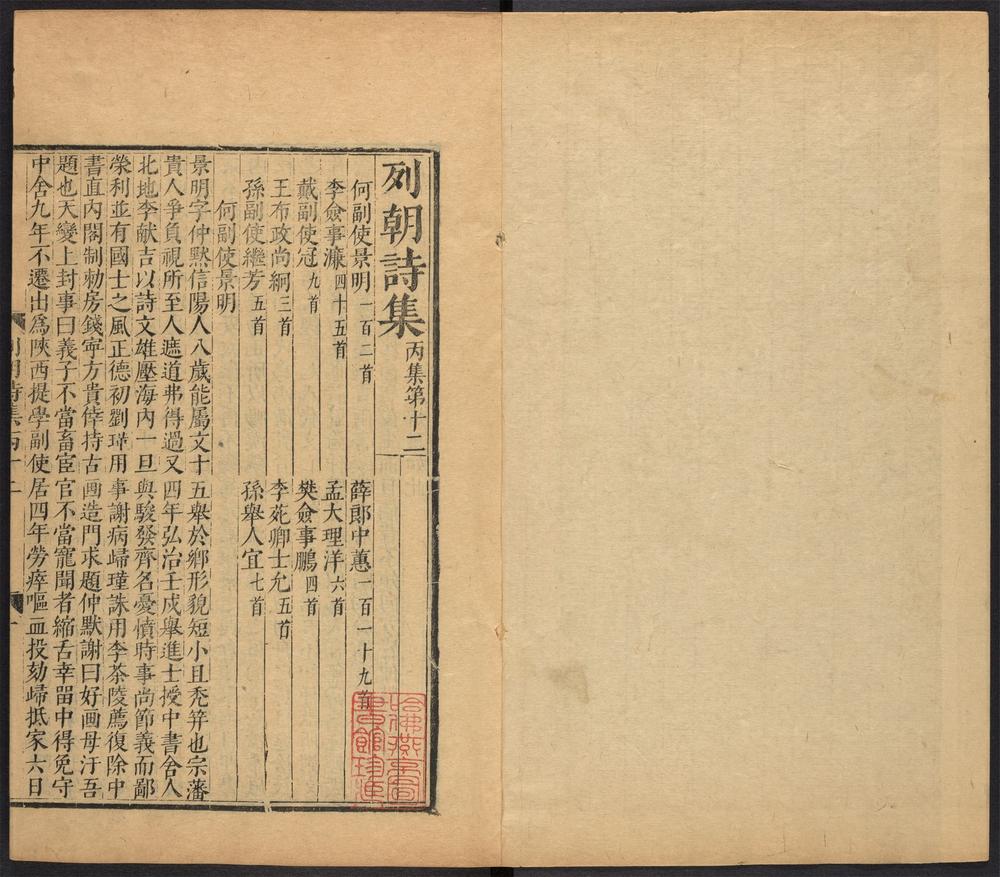 列朝詩集 丙集第十二
何副使景明 一百二首 薛郎中蕙 一百一十九首
李僉事濂 四十五首 孟大理洋 六首
戴副使冠 九首 樊僉事鵬 四首
王布政尚絅 三首 李苑卿士允 五首
孫副使繼芳 五首 孫舉人宜 七首
何副使景明
景明字仲默信陽人八歲能屬文十五舉於鄉形貌短小且禿笄也宗藩
貴人爭負視所至人遮道弗得過又四年弘治壬戌舉進士授中書舍人
北地李献吉以詩文雄壓海內一旦與駿發齊名憂憤時事尚節義而鄙
榮利並有國士之風正德初劉瑾用事謝病歸瑾誅用李茶陵薦復除中
書直內閣制勑房錢寧方貴倖持古画造門求題仲默謝曰好画毋汙吾
題也天變上封事曰義子不當畜宦官不當寵聞者縮舌幸畱中得免守
中舍九年不遷出爲陝西提學副使居四年勞瘁嘔血投劾歸抵家六日
列朝詩集丙十二
一
哈佛燕京圖書館珍藏